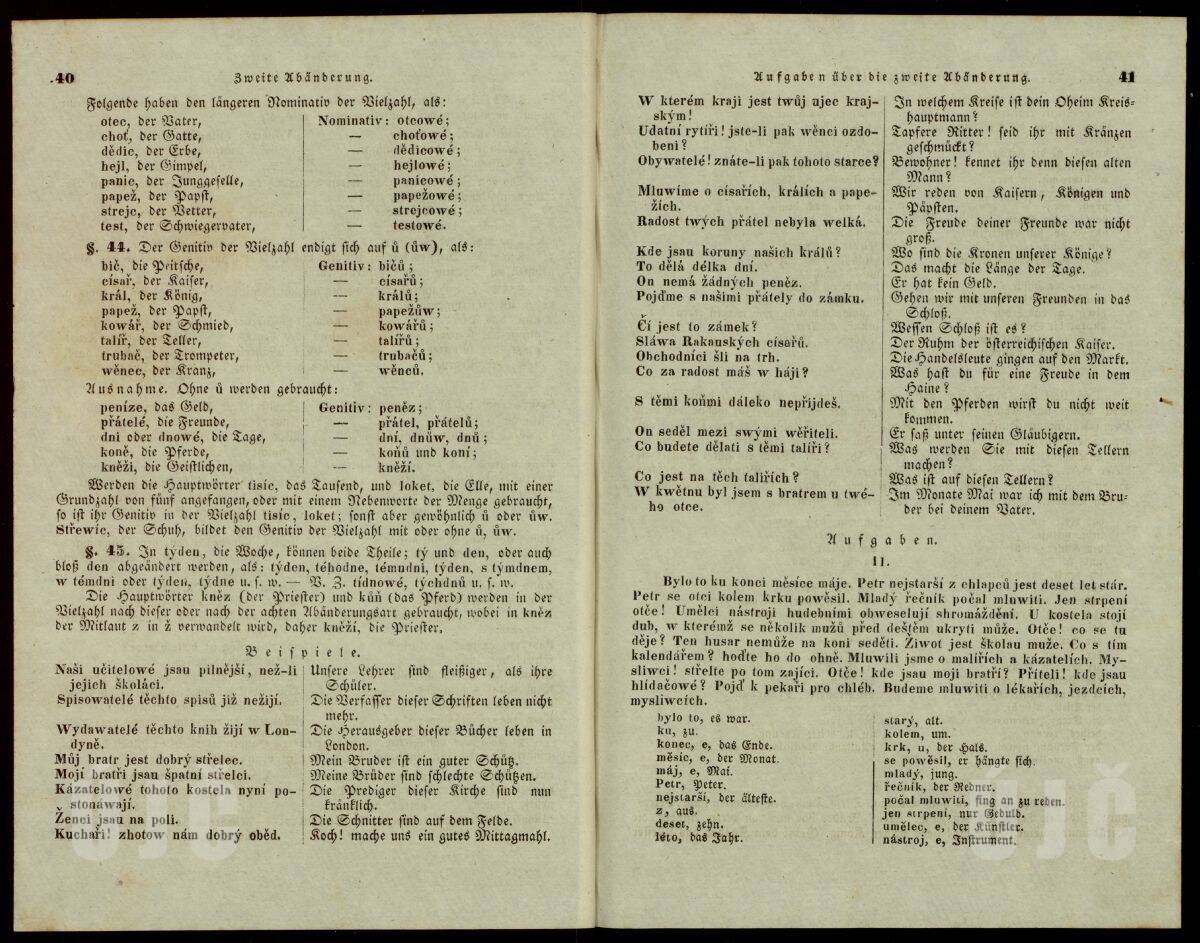 40
Zweite Abänderung.
Folgende haben den längeren Nominativ der Vielzahl, als:
otec, der Vater, Nominativ: otcowé;
choť, der Gatte, — choťowé;
dědic, der Erbe, — dědicowé;
hejl, der Gimpel, — hejlowé;
panic, der Junggeselle, — panicowé;
papež, der Papst, — papežowé;
strejc, der Vetter, — strejcowé;
test, der Schwiegervater, — testowé.
§. 44. Der Genitiv der Vielzahl endigt sich auf ů (ůw), als:
bič, die Peitsche, Genitiv: bičů;
císař, der Kaiser, — císařů;
král, der König, — králů;
papež, der Papst, — papežůw;
kowář, der Schmied, — kowářů;
talíř, der Teller, — talířů;
trubač, der Trompeter, — trubačů;
wěnec, der Kranz, — wěnců.
Ausnahme. Ohne ů werden gebraucht:
peníze, das Geld, Genitiv: peněz;
přátelé, die Freunde, — přátel, přátelů;
dni oder dnowé, die Tage, — dní, dnůw, dnů;
koně, die Pferde, — koňů und koní;
kněži, die Geistlichen, — kněží.
Werden die Hauptwörter tisíc, das Tausend, und loket, die Elle, mit einer
Grundzahl von fünf angefangen, oder mit einem Nebenworte der Menge gebraucht,
so ist ihr Genitiv in der Vielzahl tisíc, loket; sonst aber gewöhnlich ů oder ůw.
Střewíc, der Schuh, bildet den Genitiv der Vielzahl mit oder ohne ů, ůw.
§. 45. In týden, die Woche, können beide Theile; tý und den, oder auch
bloß den abgeändert werden, als: týden, téhodne, témudni, týden, s týmdnem,
w témdni oder týden, týdne u. s. w. — V. Z. tídnowé, týchdnů u. s. w.
Die Hauptwörter kněz (der Priester) und kůň (das Pferd) werden in der
Vielzahl nach dieser oder nach der achten Abänderungsart gebraucht, wobei in kněz
der Mitlaut z in ž verwandelt wird, daher kněží, die Priester.
Beispiele.
Naši učitelowé jsau pilnější, než-li
jejich školáci.
Unsere Lehrer sind fleißiger, als ihre
Schüler.
Spisowatelé těchto spisů již nežijí.
Die Verfasser dieser Schriften leben nicht
mehr.
Wydawatelé těchto knih žijí w Lon-
dyně.
Die Herausgeber dieser Bücher leben in
London.
Můj bratr jest dobrý střelec.
Mein Bruder ist ein guter Schütz.
Mojí bratři jsau špatní střelci.
Meine Brüder sind schlechte Schützen.
Kázatelowé tohoto kostela nyní po-
stonáwají.
Die Prediger dieser Kirche sind nun
kränklich.
Ženci jsau na poli.
Die Schnitter sind auf dem Felde.
Kuchaři! zhotow nám dobrý oběd.
Koch! mache uns ein gutes Mittagmahl.
Aufgaben über die zweite Abänderung.
41
W kterém kraji jest twůj ujec kraj-
ským!
In welchem Kreise ist dein Oheim Kreis-
hauptmann?
Udatní rytíři! jste-li pak wěnci ozdo-
beni?
Tapfere Ritter! seid ihr mit Kränzen
geschmückt?
Obywatelé! znáte-li pak tohoto starce?
Bewohner! kennet ihr denn diesen alten
Mann?
Mluwíme o císařích, králích a pape-
žích.
Wir reden von Kaisern, Königen und
Päpsten.
Radost twých přátel nebyla welká.
Die Freude deiner Freunde war nicht
groß.
Kde jsau koruny našich králů?
Wo sind die Kronen unserer Könige?
To dělá délka dní.
Das macht die Länge der Tage.
On nemá žádných peněz.
Er hat kein Geld.
Pojďme s našimi přátely do zámku.
Gehen wir mit unseren Freunden in das
Schloß.
Čí jest to zámek?
Wessen Schloß ist es?
Sláwa Rakauských císařů.
Der Ruhm der österreichischen Kaiser.
Obchodníci šli na trh.
Die Handelsleute gingen auf den Markt.
Co za radost máš w háji?
Was hast du für eine Freude in dem
Haine?
S těmi koňmi daleko nepřijdeš.
Mit den Pferden wirst du nicht weit
kommen.
On seděl mezi swými wěřiteli.
Er saß unter seinen Gläubigern.
Co budete dělati s těmi talíři?
Was werden Sie mit diesen Tellern
machen?
Co jest na těch talířích?
Was ist auf diesen Tellern?
W kwětnu byl jsem s bratrem u twé-
ho otce.
Im Monate Mai war ich mit dem Bru-
der bei deinem Vater.
Aufgaben.
11.
Bylo to ku konci měsíce máje. Petr nejstarší z chlapců jest deset let stár.
Petr se otci kolem krku powěsil. Mladý řečník počal mluwiti. Jen strpení
otče! Umělci nástroji hudebními obweselují shromáždění. U kostela stojí
dub, w kterémž se několik mužů před deštěm ukryti může. Otče! co se tu
děje? Ten husar nemůže na koni seděti. Žiwot jest školau muže. Co s tím
kalendářem? hoďte ho do ohně. Mluwili jsme o malířích a kázatelích. My-
sliwci! střelte po tom zajíci. Otče! kde jsau moji bratří? Příteli! kde jsau
hlídačowé? Pojď k pekaři pro chléb. Budeme mluwiti o lékařích, jezdcích,
mysliwcích.
bylo to, es war.
ku, zu.
konec, e, das Ende.
měsíc, e, der Monat.
máj, e, Mai.
Petr, Peter.
nejstarší, der älteste.
z, aus.
deset, zehn.
léto, das Jahr.
starý, alt.
kolem, um.
krk, u, der Hals.
se powěsil, er hängte sich.
mladý, jung.
řečník, der Redner.
počal mluwiti, fing an zu reden.
jen strpení, nur Geduld.
umělec, e, der Künstler.
nástroj, e, Instrument.